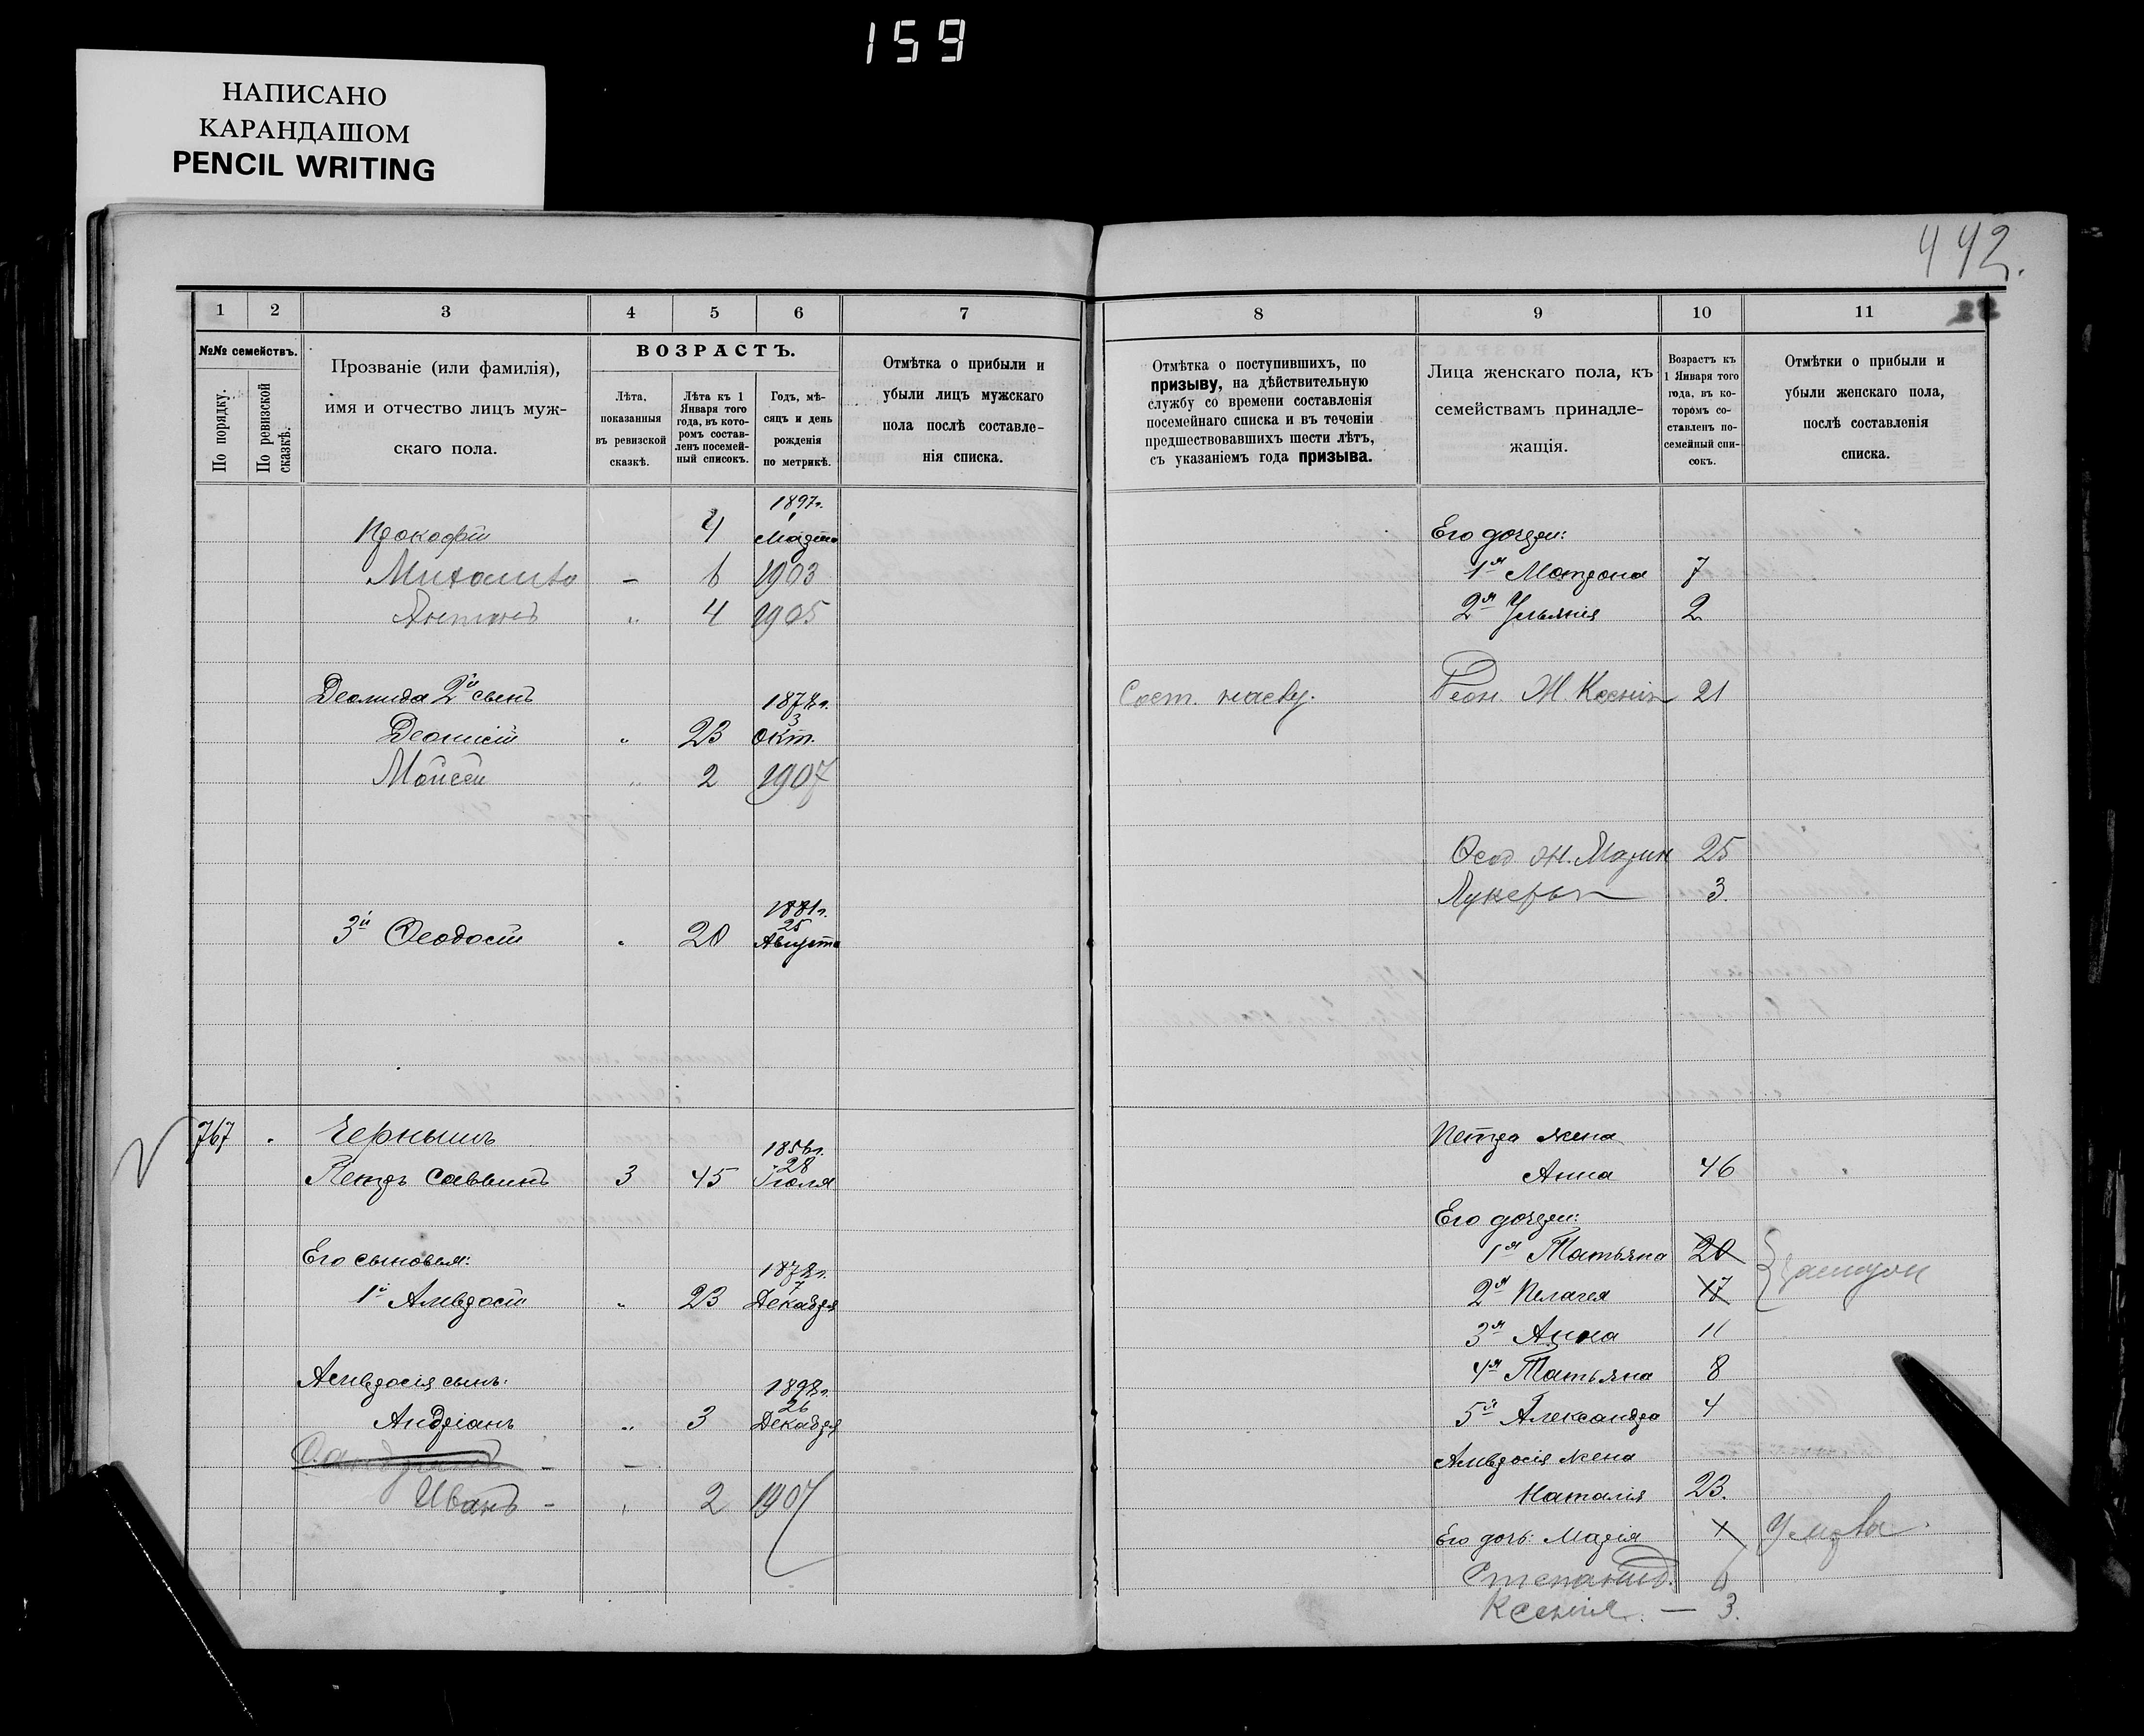 159
НАПИСАНО
КАРАНДАШОМ
PENCIL WRITING
442.
1 2 3 4 5 6 7
№№ семействъ.
По порядку.
По ревизской сказкѣ.
Прозваніе (или фамилія),
имя и отчество лицъ муж-
скаго пола.
ВОЗРАСТЪ.
Лѣта,
показанныя
въ ревизской
сказкѣ.
Лѣта къ 1
Января того
года, въ кото-
ромъ состав-
ленъ посемей-
ный списокъ.
Годъ, мѣ-
сяцъ и день
рожденія
по метрикѣ.
Отмѣтка о прибыли и
убыли лицъ мужскаго
пола послѣ составле-
нія списка.
1897г.
Прокофій 4 Марта
6 1903
Антонъ " 4 1905
Деомида 2й сынъ
Деонисій " 23 3 Окт.
Моисей " 2 1907
1881г.
25
3й Феодосій " 20 Августа
767 Чернышъ
1856г.
28
Петръ Саввинъ 3 45 Іюля
Его сыновья:
7
1й Амвросій " 23 Декабря
Амвросія сынъ:
26
Андріанъ " 3 Декабря
Иванъ - " 2 1907
8 9 10 11
Отмѣтка о поступившихъ, по
призыву, на дѣйствительную
службу со времени составленія
посемейнаго списка и въ теченіи
предшествовавшихъ шести лѣтъ,
съ указаніемъ года призыва.
Лица женскаго пола, къ
семействамъ принадле-
жащія.
Возрастъ къ
1 Января того
года, въ ко-
торомъ со-
ставленъ по-
семейный спи-
сокъ.
Отмѣтки о прибыли и
убыли женскаго пола,
послѣ составленія
списка.
Его дочери:
1я Матрона 7
2я Ульянія 2
Сост. Ж. Ксенія 21
Феод. Ж. Марія 25
Лукерья 3.
Петра жена
Анна 46
Его дочери:
1я Татьяна 20
2я Пелагея 17
3я Анна 11
4я Татьяна 8
5я Александра 4
Амвросія жена
Наталія 23.
Его дочь: Марія Умерла.
Степанид. 6
Ксенія. — 3.